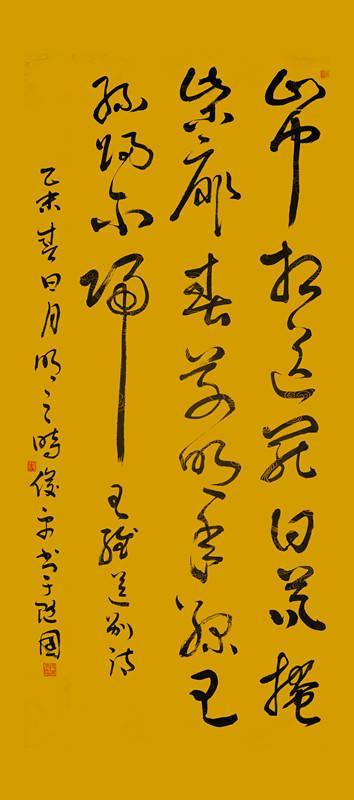 山中相送罷日暮掩
柴扉春草明年綠王
孫歸不歸 王維送別詩
乙未春日月明之時俊书于隨園